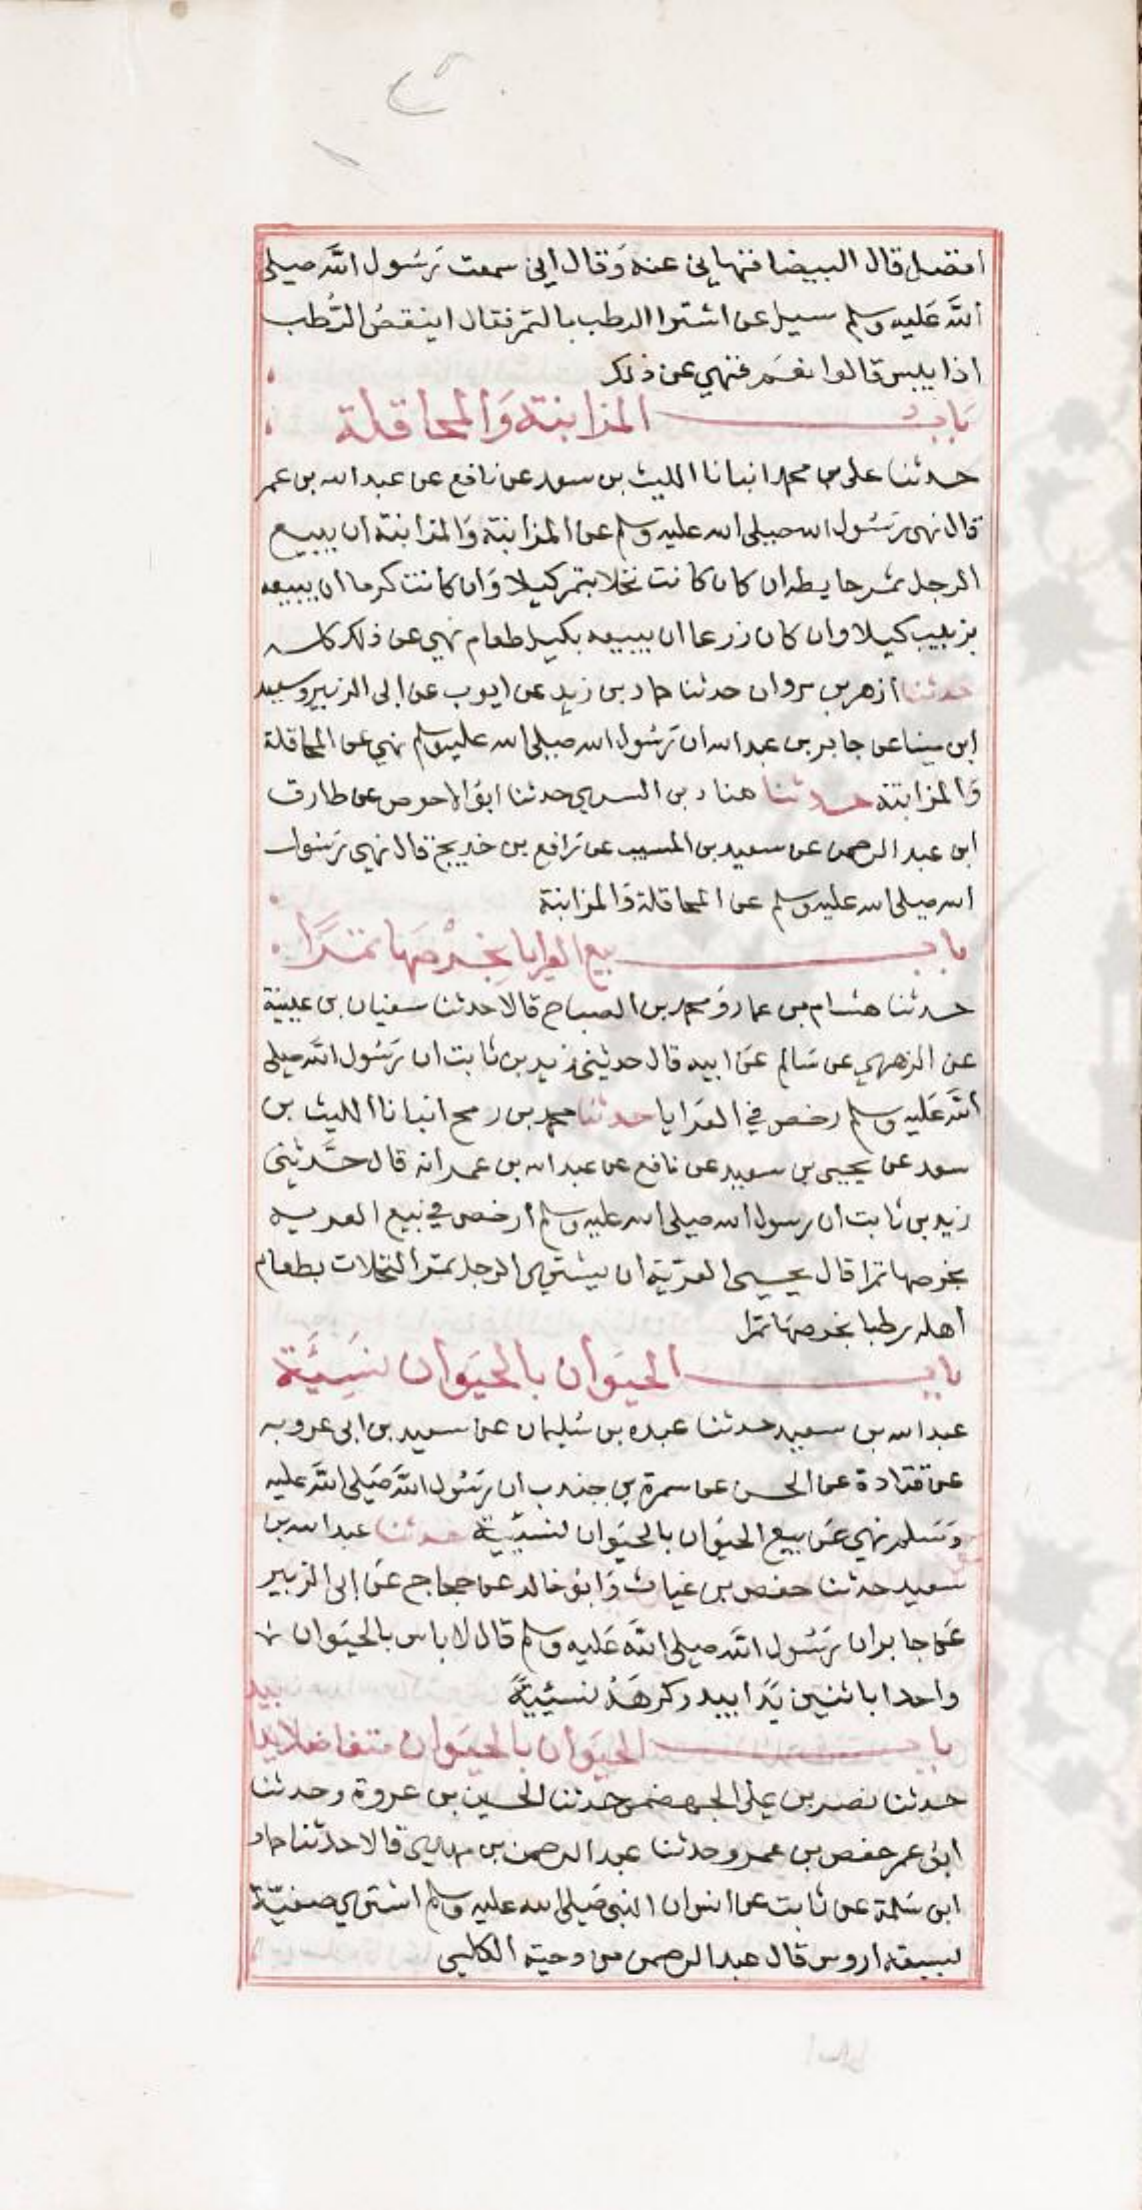 افضل قال البيضا فنهاني عنه وَقال اني سمعت رَسُول اللَّه صلى
اللَّه عَليه وسلم سيل عن اشترا الرطب بالتمر فقال اينقصُ الرُّطب
اذا يبس قالوا نعَم فنهي عن ذلك
بَابُ المزابنة وَالمحاقلة
حدثنا على بن محمد انبانا الليث بن سعد عن نافع عن عبد الله بن عمر
قال نهى رَسُول الله صلى الله عليه وسلم عن المزابنة وَالمزابنة ان يبيع
الرجل ثمر حايطه ان كان كانت نخلا بتمر كيلا وَان كانت كرما ان يبيعه
بزبيب كيلا وان كان زرعا ان يبيعه بكيل طعام نهي عن ذلك كله
حدثنا أزهر بن مروان حدثنا حماد بن زيد عن ايوب عن ابى الزبير وسعيد
ابن مينا عن جابر بن عبد الله ان رَسُول الله صلى الله عليه وسلم نهي عن المحاقلة
وَالمزابنة حدثنا هناد بن السري حدثنا ابو الاحوص عن طارق
ابن عبد الرحمن عن سعيد بن المسيب عن رَافع بن خديج قال نهي رَسُول
الله صلى الله عليه وسلم عن المحاقلة وَالمزابنة
باب بيع العرايا بِخَرْصَها تمرًا
حدثنا هشام بن عمار وَمحمد بن الصباح قالا حدثنا سفيان بن عيينة
عن الزهري عن سَالم عن ابيه قال حدثني زيد بن ثابت ان رَسُول اللَّه صلى
اللَّه عَليه وسلم رخص في العَرايا حدثنا محمد بن رمح انبانا الليث بن
سعد عن يحيى بن سعيد عن نافع عن عبد الله بن عمر انه قال حَدَّثني
زيد بن ثابت ان رسول الله صلى الله عليه وسلم أرخص في بيع العريه
بخرصها تمرا قال يحيى العرّية ان يشتري الرجل تمر النخلات بطعام
أهله رطبا بخرصهَا تمرا
باب الحيَوان بالحيَوان نسَيئَة
عبد الله بن سعيد حدثنا عبده بن سُليمان عن سعيد بن ابى عروبه
عن قتادة عن الحسن عن سمرة بن جندب ان رَسُول اللَّه صَلى اللَّه عليه
وَسَلم نهي عَن بيع الحيَوان بالحيَوان نسيئَة حدثنا عبد الله بن
سعيد حدثنا حفص بن غياث وَابو خالد عن حجاج عَن ابى الزبير
عَن جابر ان رَسُول اللَّه صلى اللَّه عَليه وسلم قال لا باس بالحيَوان
واحدا باثنين يَدًا بيد وكرهَهُ نسيئةً
باب الحيَوان بالحيَوان متفاضلا يدا بيد
حدثنا نصر بن علي الجهضمى حدثنا الحسين بن عروة وحدثنا
ابو عمر حفص بن عمر وحدثنا عبد الرحمن بن مهدي قالا حدثنا حماد
ابن سَلمة عن ثابت عن انس ان النبي صَلى الله عليه وسلم اشتري صفيّة
لسبعة اروس قال عبد الرحمن من دحية الكلبى